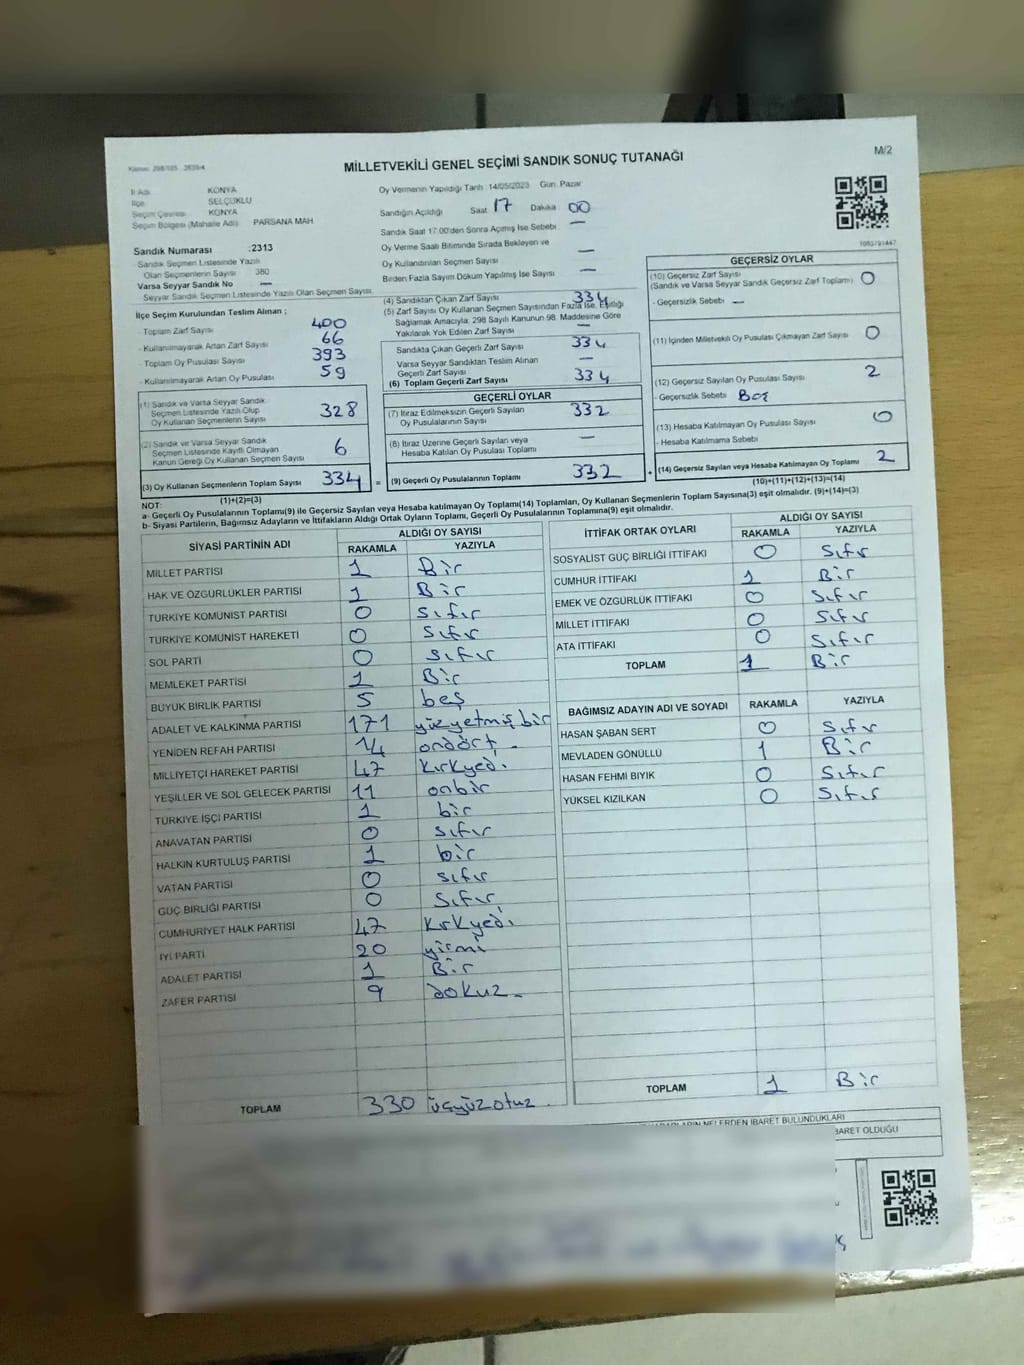 MİLLETVEKİLİ GENEL SEÇİMİ SANDIK SONUÇ TUTANAĞI
M/2
İl Adı KONYA
İlçe SELÇUKLU
Seçim Çevresi KONYA
Seçim Bölgesi (Mahalle Adı) PARSANA MAH
Sandık Numarası :2313
Sandık Seçmen Listesinde Yazılı
Olan Seçmenlerin Sayısı 380
Varsa Seyyar Sandık No —
Seyyar Sandık Seçmen Listesinde Yazılı Olan Seçmen Sayısı
İlçe Seçim Kurulundan Teslim Alınan ;
Toplam Zarf Sayısı 400
- Kullanılmayarak Artan Zarf Sayısı 66
- Toplam Oy Pusulası Sayısı 393
- Kullanılmayarak Artan Oy Pusulası 59
(1) Sandık ve Varsa Seyyar Sandık
Seçmen Listesinde Yazılı Olup
Oy Kullanan Seçmenlerin Sayısı 328
(2) Sandık ve Varsa Seyyar Sandık
Seçmen Listesinde Kayıtlı Olmayan
Kanun Gereği Oy Kullanan Seçmen Sayısı 6
(3) Oy Kullanan Seçmenlerin Toplam Sayısı 334 =
(1)+(2)=(3)
Oy Vermenin Yapıldığı Tarih 14/05/2023 Gün: Pazar
Sandığın Açıldığı Saat 17 Dakika 00
Sandık Saat 17:00'den Sonra Açılmış İse Sebebi —
Oy Verme Saati Bitiminde Sırada Bekleyen ve
Oy Kullandırılan Seçmen Sayısı —
Birden Fazla Sayım Döküm Yapılmış İse Sayısı —
(4) Sandıktan Çıkan Zarf Sayısı 334
(5) Zarf Sayısı Oy Kullanan Seçmen Sayısından Fazla İse, Eşitliği
Sağlamak Amacıyla, 298 Sayılı Kanunun 98. Maddesine Göre
Yakılarak Yok Edilen Zarf Sayısı —
Sandıkta Çıkan Geçerli Zarf Sayısı 334
Varsa Seyyar Sandıktan Teslim Alınan
Geçerli Zarf Sayısı —
(6) Toplam Geçerli Zarf Sayısı 334
GEÇERLİ OYLAR
(7) İtiraz Edilmeksizin Geçerli Sayılan
Oy Pusulalarının Sayısı 332
(8) İtiraz Üzerine Geçerli Sayılan veya
Hesaba Katılan Oy Pusulası Toplamı —
(9) Geçerli Oy Pusulalarının Toplamı 332 +
GEÇERSİZ OYLAR
(10) Geçersiz Zarf Sayısı
(Sandık ve Varsa Seyyar Sandık Geçersiz Zarf Toplamı) 0
- Geçersizlik Sebebi —
(11) İçinden Milletvekili Oy Pusulası Çıkmayan Zarf Sayısı 0
(12) Geçersiz Sayılan Oy Pusulası Sayısı 2
- Geçersizlik Sebebi Boş
(13) Hesaba Katılmayan Oy Pusulası Sayısı 0
- Hesaba Katılmama Sebebi
(14) Geçersiz Sayılan veya Hesaba Katılmayan Oy Toplamı 2
(10)+(11)+(12)+(13)=(14)
NOT:
a- Geçerli Oy Pusulalarının Toplamı(9) ile Geçersiz Sayılan veya Hesaba katılmayan Oy Toplamı(14) Toplamları, Oy Kullanan Seçmenlerin Toplam Sayısına(3) eşit olmalıdır. (9)+(14)=(3)
b- Siyasi Partilerin, Bağımsız Adayların ve İttifakların Aldığı Ortak Oyların Toplamı, Geçerli Oy Pusulalarının Toplamına(9) eşit olmalıdır.
SİYASİ PARTİNİN ADI ALDIĞI OY SAYISI
RAKAMLA YAZIYLA
MİLLET PARTİSİ 1 Bir
HAK VE ÖZGÜRLÜKLER PARTİSİ 1 Bir
TÜRKİYE KOMÜNİST PARTİSİ 0 sıfır
TÜRKİYE KOMÜNİST HAREKETİ 0 sıfır
SOL PARTİ 0 sıfır
MEMLEKET PARTİSİ 1 Bir
BÜYÜK BİRLİK PARTİSİ 5 beş
ADALET VE KALKINMA PARTİSİ 171 yüzyetmiş bir
YENİDEN REFAH PARTİSİ 14 ondört
MİLLİYETÇİ HAREKET PARTİSİ 47 kırkyedi
YEŞİLLER VE SOL GELECEK PARTİSİ 11 onbir
TÜRKİYE İŞÇİ PARTİSİ 1 bir
ANAVATAN PARTİSİ 0 sıfır
HALKIN KURTULUŞ PARTİSİ 1 bir
VATAN PARTİSİ 0 sıfır
GÜÇ BİRLİĞİ PARTİSİ 0 sıfır
CUMHURİYET HALK PARTİSİ 47 kırkyedi
İYİ PARTİ 20 yirmi
ADALET PARTİSİ 1 Bir
ZAFER PARTİSİ 9 dokuz
TOPLAM 330 üçyüzotuz
İTTİFAK ORTAK OYLARI ALDIĞI OY SAYISI
RAKAMLA YAZIYLA
SOSYALİST GÜÇ BİRLİĞİ İTTİFAKI 0 sıfır
CUMHUR İTTİFAKI 1 Bir
EMEK VE ÖZGÜRLÜK İTTİFAKI 0 sıfır
MİLLET İTTİFAKI 0 sıfır
ATA İTTİFAKI 0 sıfır
TOPLAM 1 Bir
BAĞIMSIZ ADAYIN ADI VE SOYADI RAKAMLA YAZIYLA
HASAN ŞABAN SERT 0 Sıfır
MEVLADEN GÖNÜLLÜ 1 Bir
HASAN FEHMİ BIYIK 0 Sıfır
YÜKSEL KIZILKAN 0 Sıfır
TOPLAM 1 Bir
NELERDEN İBARET BULUNDUKLARI
BARET OLDUĞU